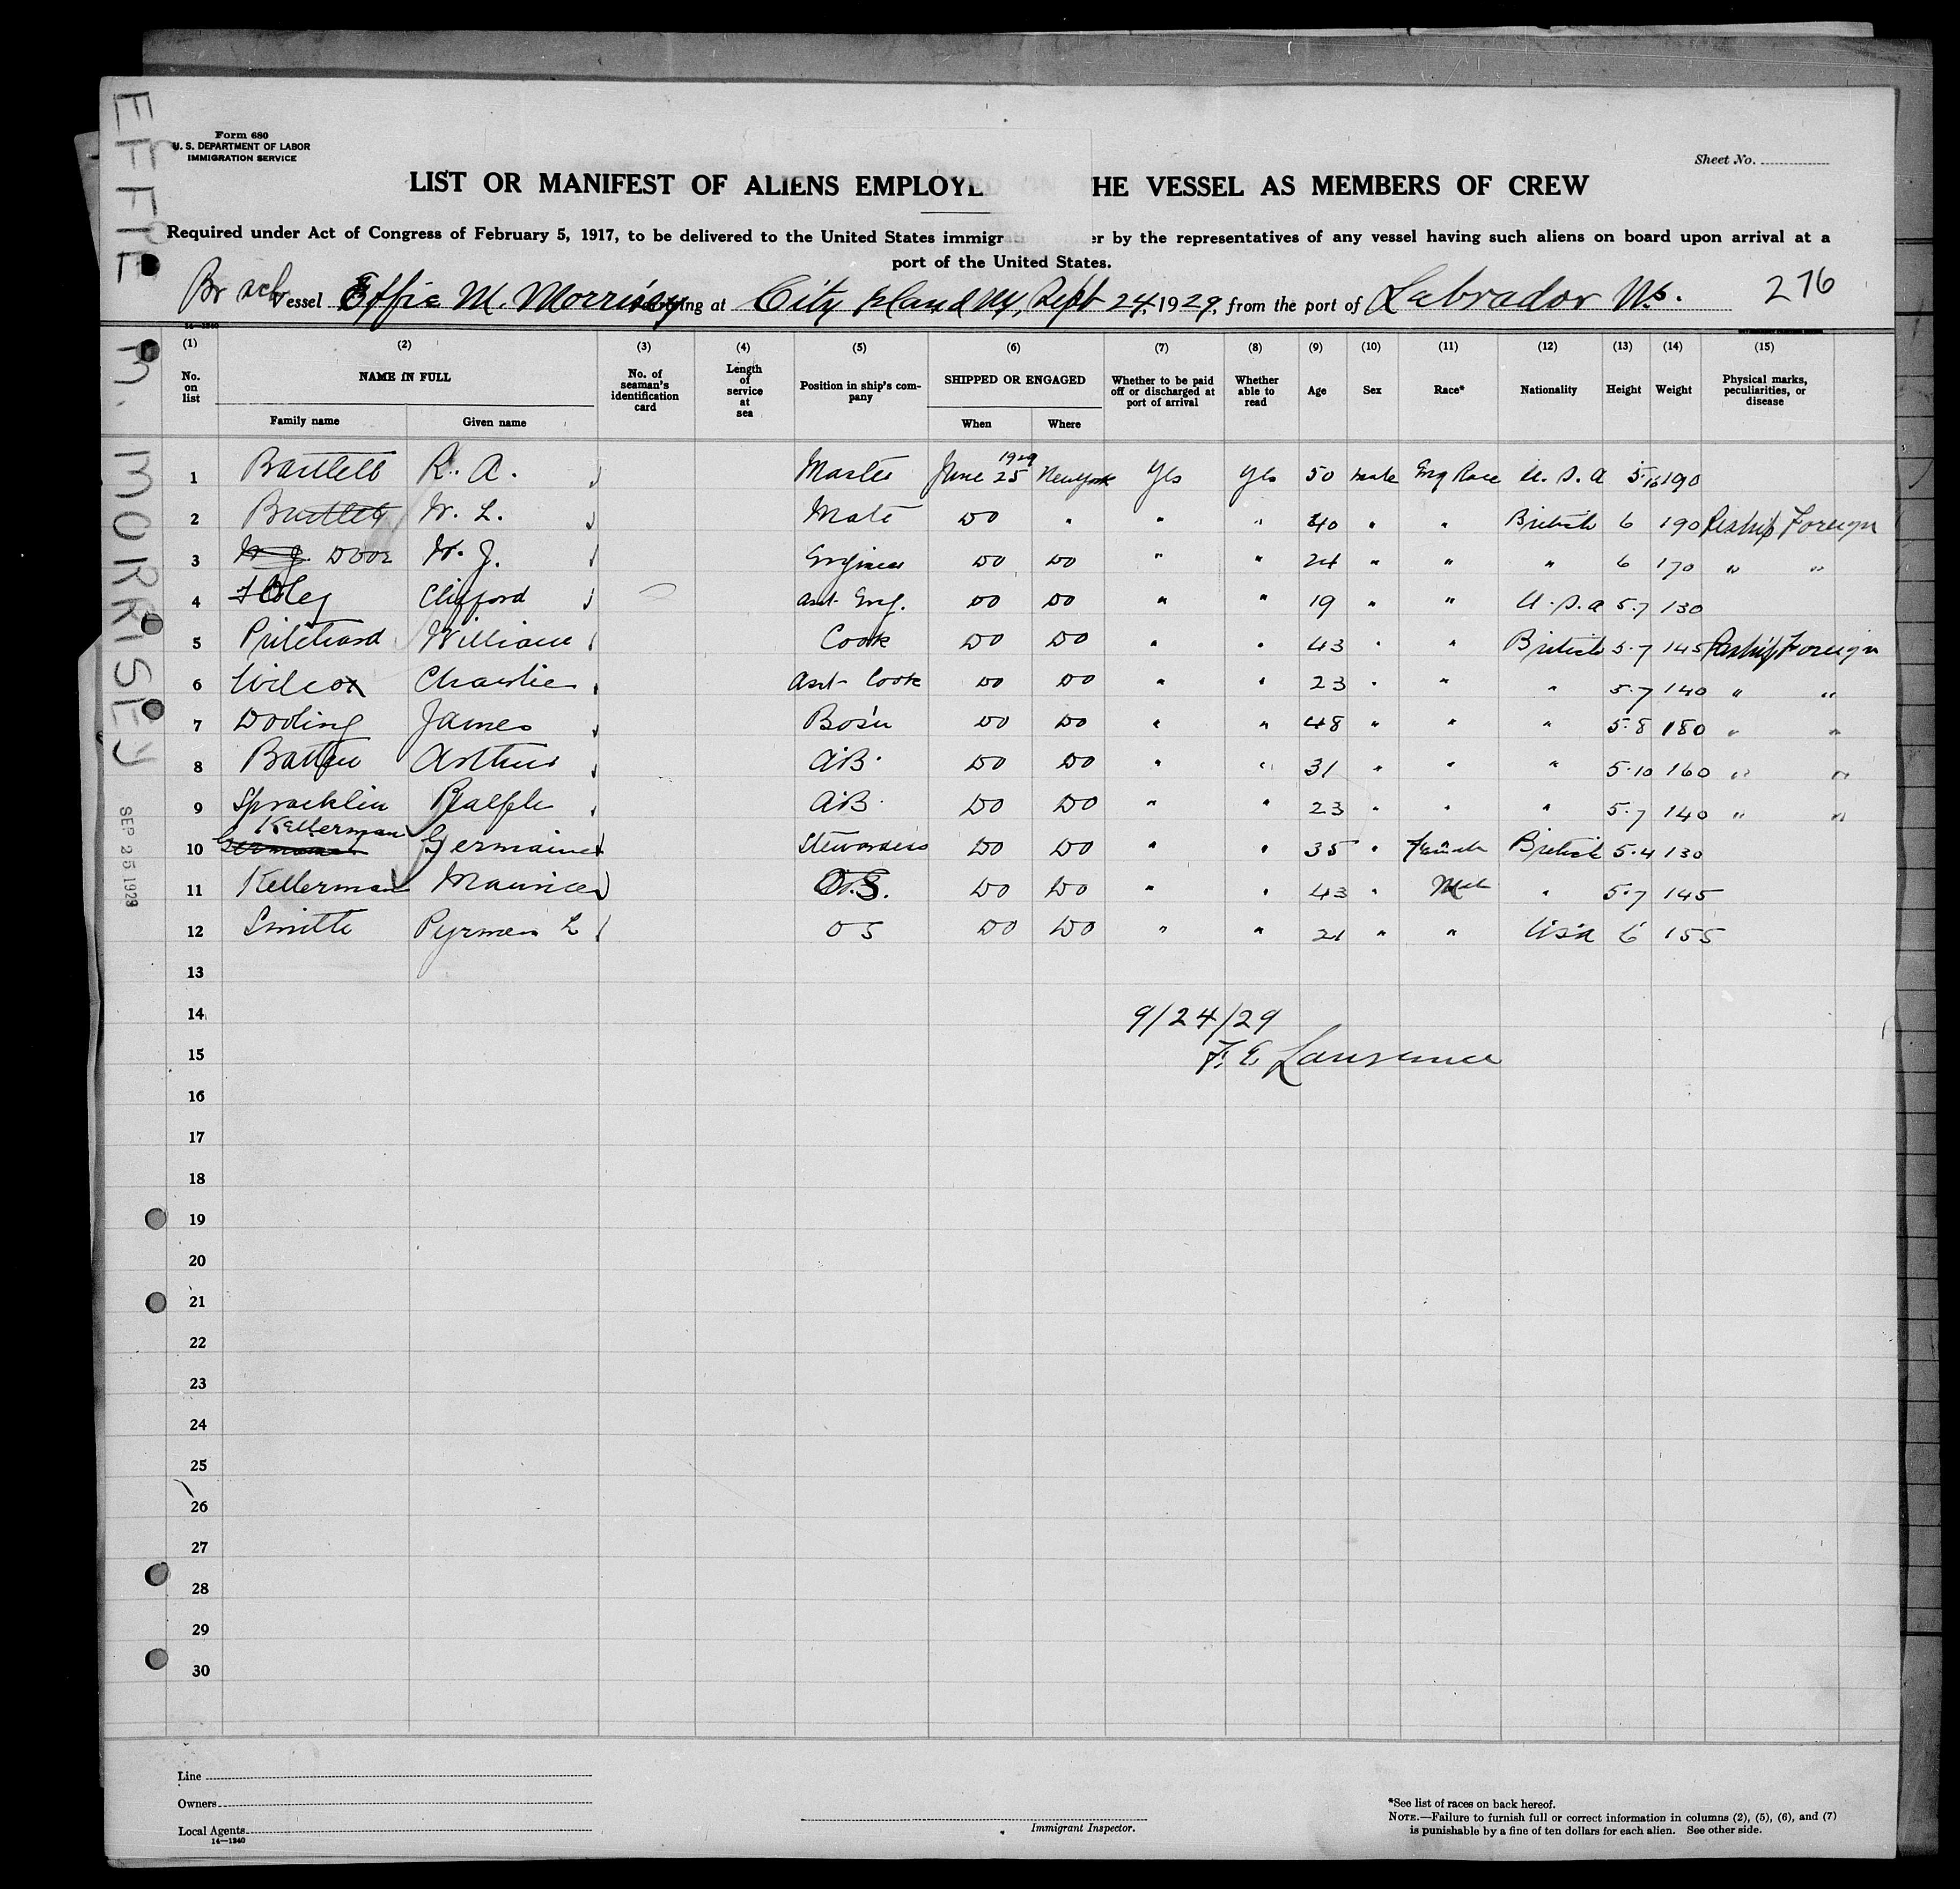 EFFIE M. MORRISEY
SEP 25 1929
Form 680
U. S. DEPARTMENT OF LABOR
IMMIGRATION SERVICE
Sheet No.
LIST OR MANIFEST OF ALIENS EMPLOYE HE VESSEL AS MEMBERS OF CREW
Required under Act of Congress of February 5, 1917, to be delivered to the United States immigr er by the representatives of any vessel having such aliens on board upon arrival at a
port of the United States.
Br sch Vessel Effie M. Morrisey arriving at City Island NY, Sept 24, 1929, from the port of Labrador 276
14—1240
(1) (2) (3) (4) (5) (6) (7) (8) (9) (10) (11) (12) (13) (14) (15)
No. on list NAME IN FULL No. of seaman's identification card Length of service at sea Position in ship's company SHIPPED OR ENGAGED Whether to be paid off or discharged at port of arrival Whether able to read Age Sex Race* Nationality Height Weight Physical marks, peculiarities, or disease
Family name Given name When Where
1 Bartlett R. A. Master June 25 1929 New York Yes Yes 50 male Eng Race U. S. A 5 190
2 Bartlett W. L. Mate DO " " " 40 " " British 6 190 Reship Foreign
3 W. J. Engineer DO DO " " 24 " " " 6 170 " "
4 Clifford Asst. Eng. DO DO " " 19 " " U. S. A 5.7 130
5 Pritchard William Cook DO DO " " 43 " " British 5.7 145 Reship Foreign
6 Wilcox Charlie Asst Cook DO DO " " 23 " " " 5.7 140 " "
7 Dooling James Bos'n DO DO " " 48 " " " 5.8 180 " "
8 Batten Arthur A.B. DO DO " " 31 " " " 5.10 160 " "
9 Spracklin Ralph A.B. DO DO " " 23 " " " 5.7 140 " "
10 Kellerman Germaine Stewardess DO DO " " 35 " female British 5.4 130
11 Kellerman Maurice O.S. DO DO " " 43 " Male " 5.7 145
12 Smith L OS DO DO " " 21 " " USA 6 155
13
14 9/24/29
15 F. E. Lawrence
16
17
18
19
20
21
22
23
24
25
26
27
28
29
30
Line
Owners
Local Agents
14—1240
Immigrant Inspector.
*See list of races on back hereof.
NOTE.—Failure to furnish full or correct information in columns (2), (5), (6), and (7)
is punishable by a fine of ten dollars for each alien. See other side.